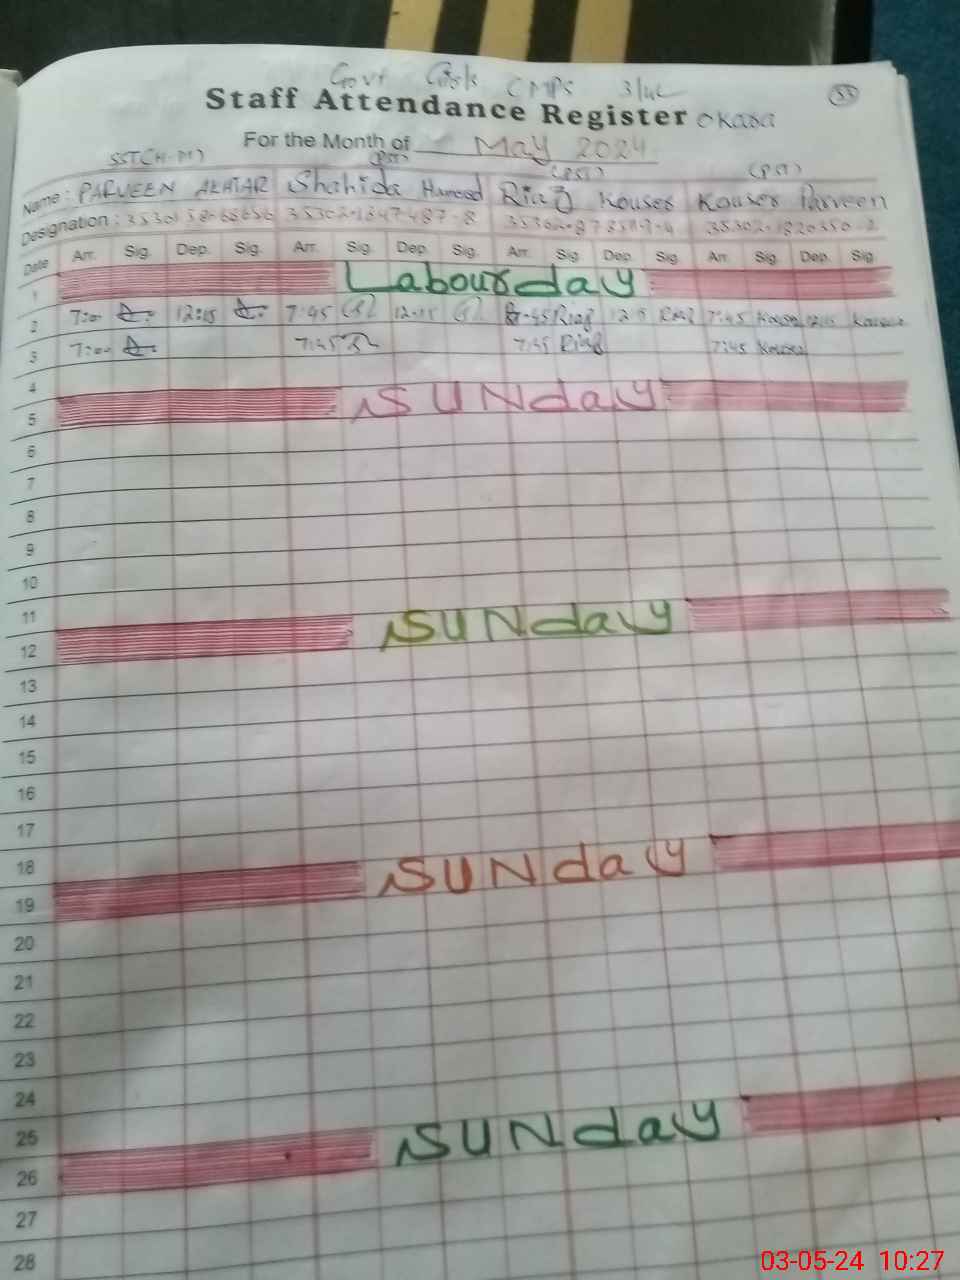 Govt CMPS 3/4L 55
Staff Attendance Register Okara
For the Month of May 2024
(PST) (PST) (PST)
Name: PARVEEN AKHTAR Shahida Hameed Riaz Kouser Kouser Parveen
Designation:
Date Arr. Sig. Dep. Sig. Arr. Sig. Dep. Sig. Arr. Sig. Dep. Sig. Arr. Sig. Dep. Sig.
1 Labour day
2 7:00 12:15 7:45 12:15 Riaz Riaz 7:45 Kouser 12:15 Kouser
3 7:00 7:45 7:45 Riaz 7:45 Kouser
4
5 SUNday
6
7
8
9
10
11
12 SUNday
13
14
15
16
17
18
19 SUNday
20
21
22
23
24
25
26 SUNday
27
28
03-05-24 10:27